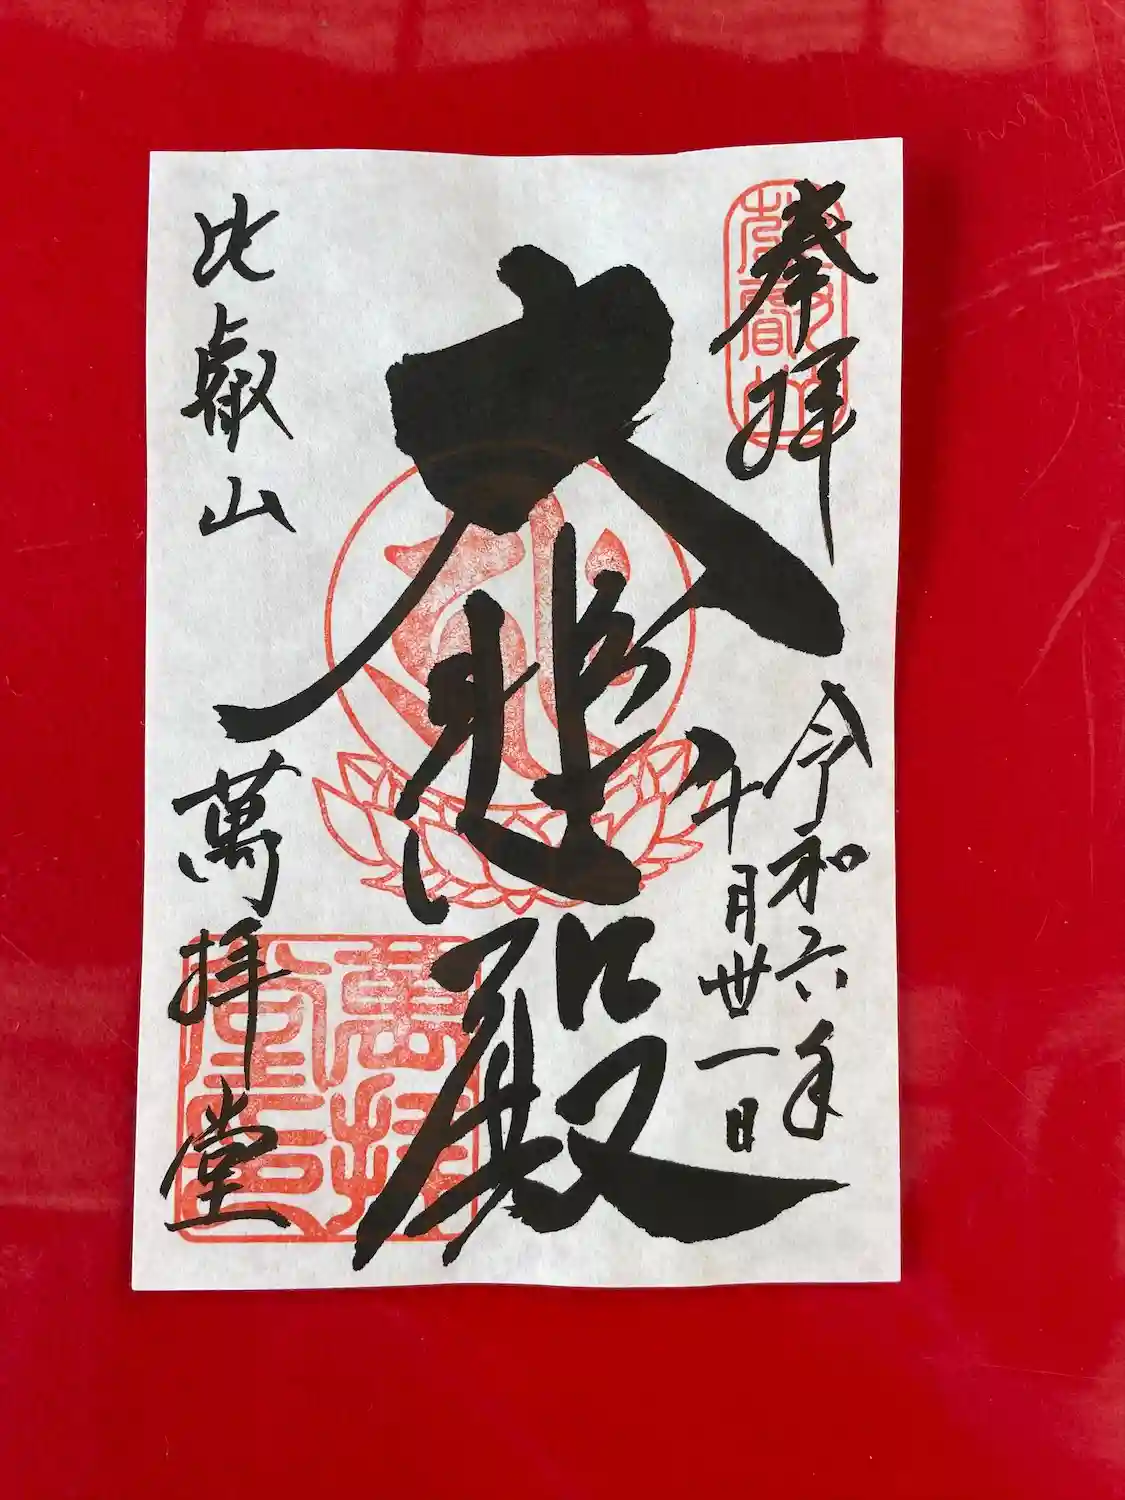 奉拝
令和六年
十月丗一日
大悲殿
比叡山
萬拝堂
萬拝堂